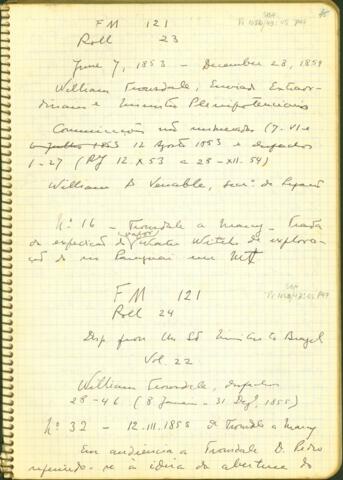 FM 121
Roll 23
June 7, 1853 - December 28, 1854
William Trousdale, Enviad Extraor-
dinario e Ministro Plenipotenciario
Communicações não numeradas (7-VI e
12 Agosto 1853 e despachos
1-27 (RJ 12.X.53 a 28-XII.54)
William A Venable, secº da Legação
Nº 16 - Trousdale a Marcy - Trata
da expedição do vapor Water Witch de explora-
ção do rio Paraguai em MT
FM 121
Roll 24
Disp. from US Ministers to Brazil
Vol. 22
William Trousdale, despachos
28-46 (8 Janeiro - 31 Dezº, 1855)
Nº 32 - 12.III.1855 de Trousdale a Marcy
Em audiencia a Trousdale D. Pedro
referindo-se à idéia da abertura do